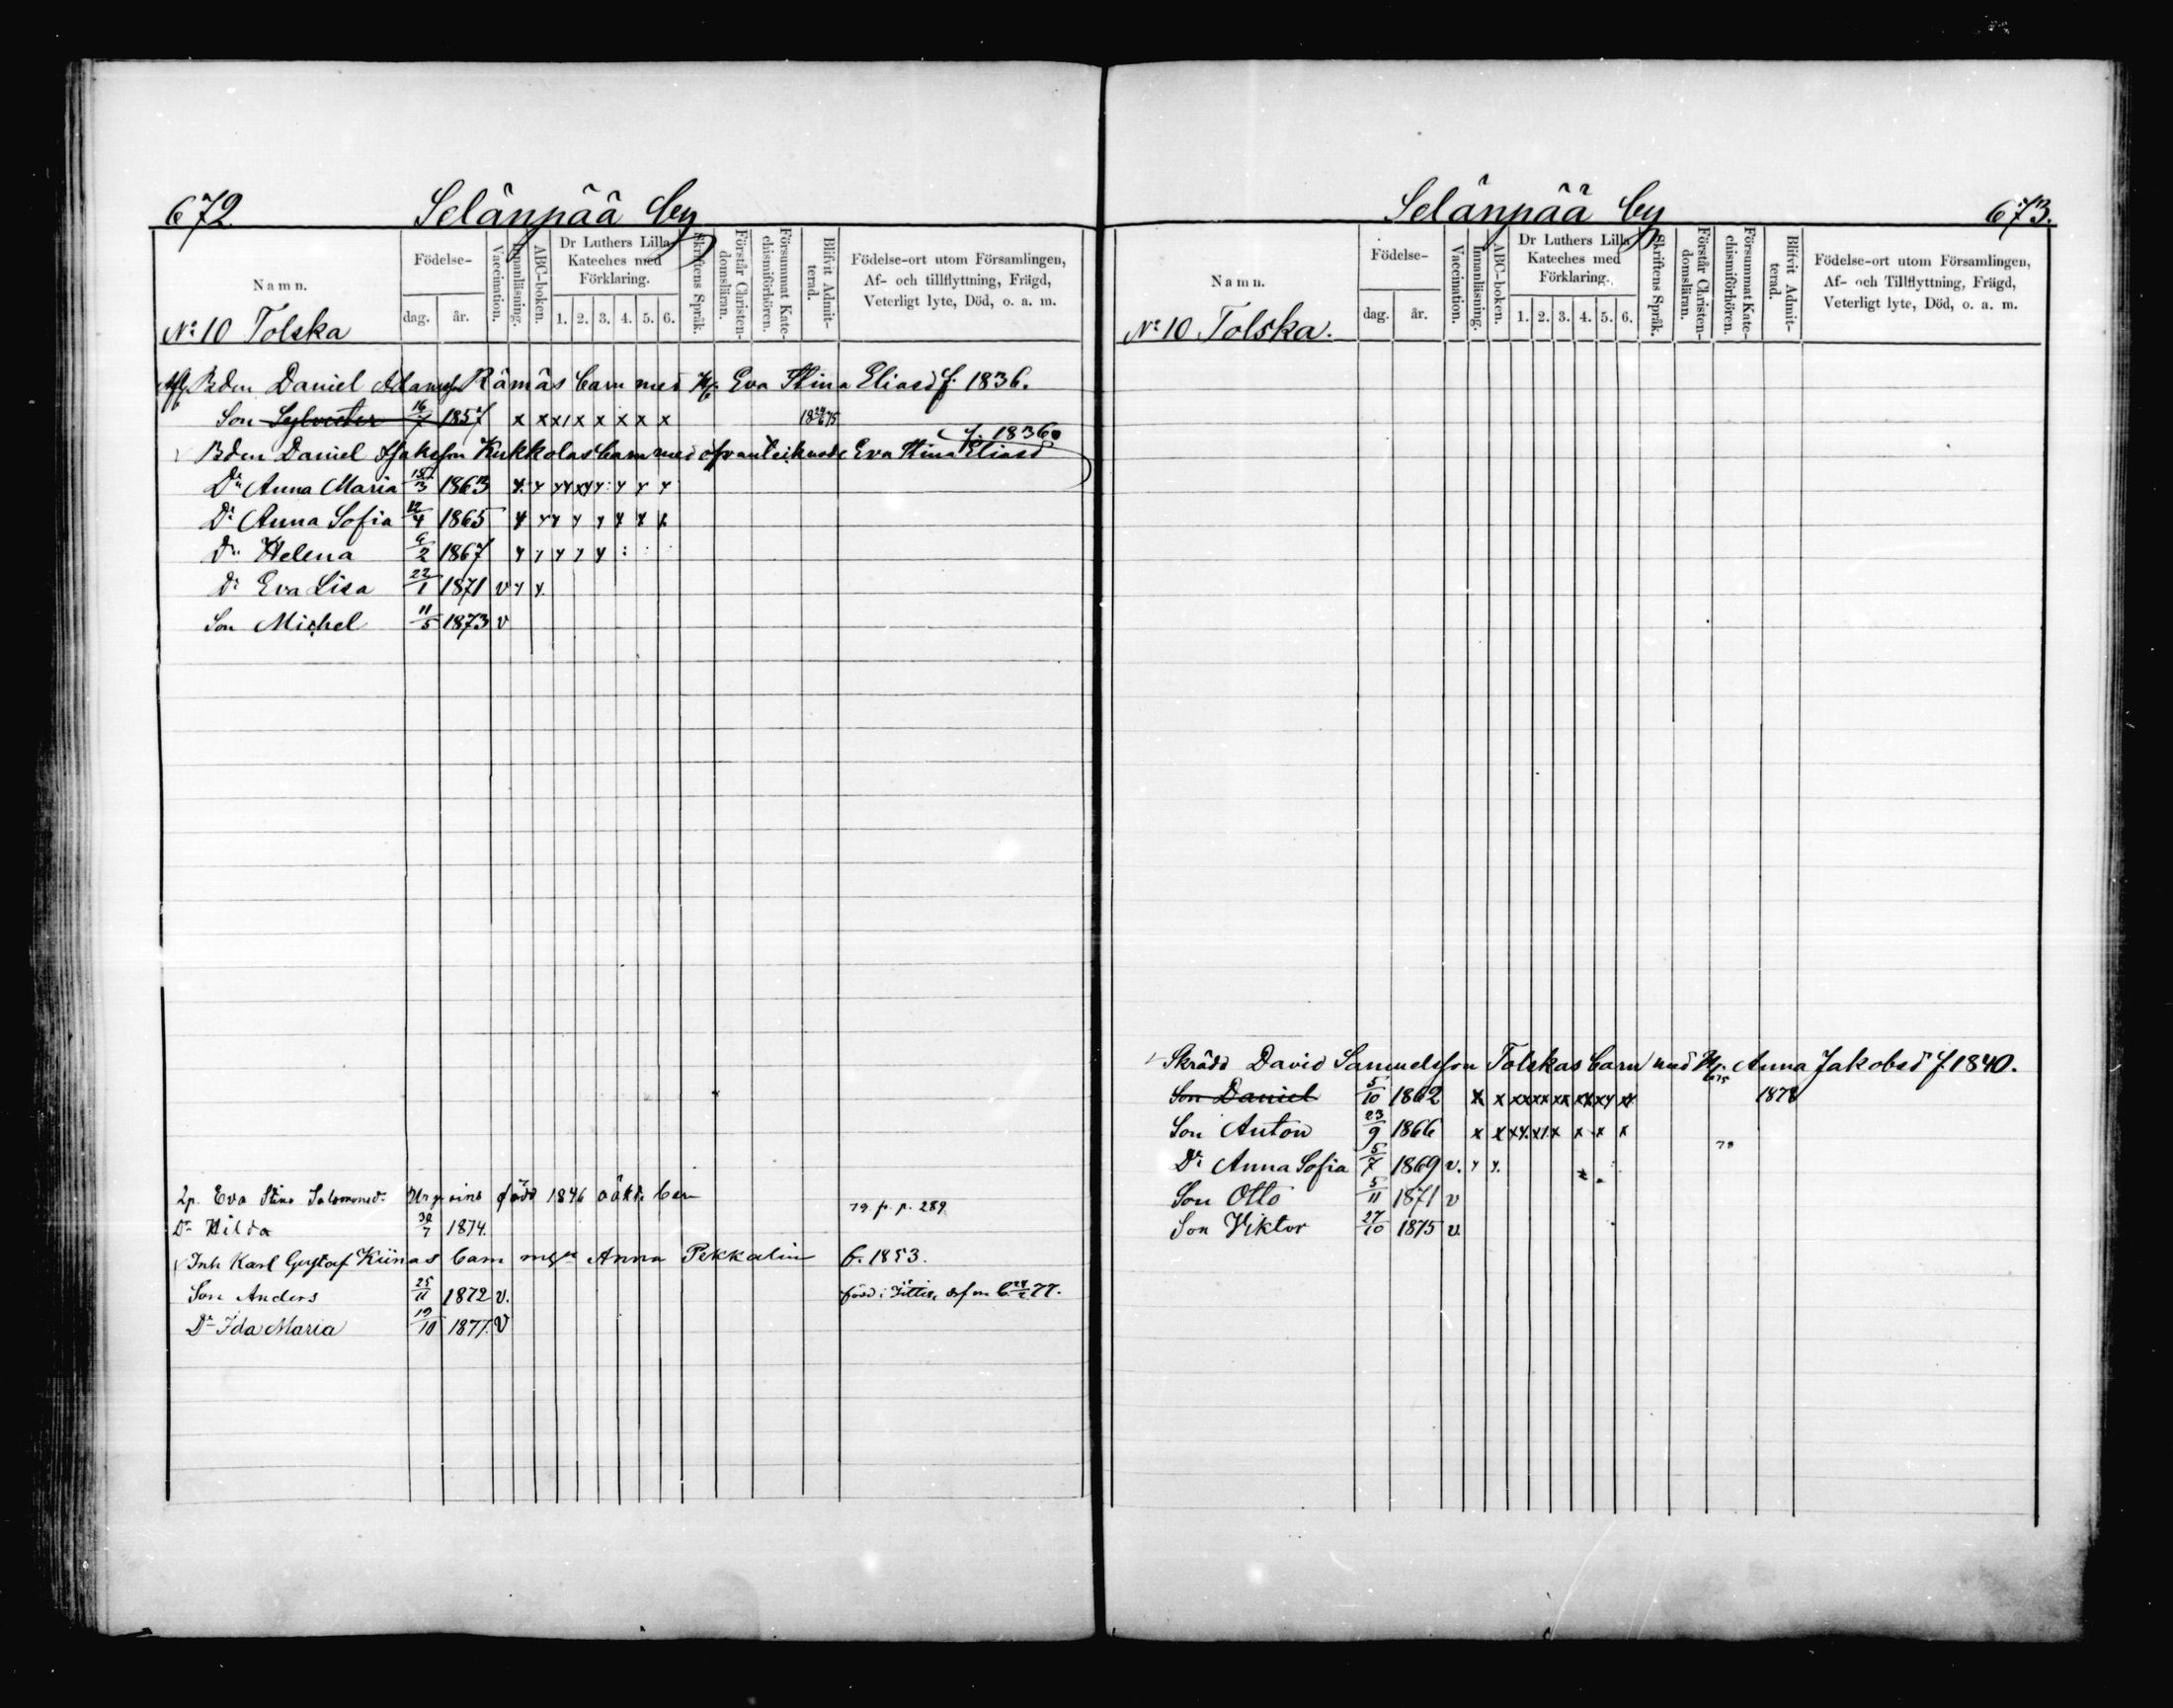 672. Selänpää by
Namn. Födelse- dag. år. Vaccination. Innanläsning. ABC-boken. Dr Luthers Lilla Kateches med Förklaring. 1. 2. 3. 4. 5. 6. Skriftens Språk. Förstår Christendomsläran. Försummat Katechismiförhören. Blifvit Admitterad. Födelse-ort utom Församlingen, Af- och tillflyttning, Frägd, Veterligt lyte, Död, o. a. m.
No 10 Tolska
Bden Daniel Adamsson Rämäs barn med Eva Stina Eliasd f. 1836.
Son Sylvester 16/7 1857 x x x x x x x x x
f. 1836
Bden Daniel Kukkolas barn med ofvanteiknade Eva Stina Eliasd
Dr Anna Maria 1863
Dr Anna Sofia 12/4 1865
Dr Helena 9/2 1867
Dr Eva Lisa 22/1 1871 v
Son Michel 11/5 1873 v
Eva Stina Salomonsd. född 1846 oäkta barn
79 p. p. 289
Dr Hilda 30/7 1874.
Inh Karl Gustaf Kiinas barn Anna Pekkalin f. 1853.
Son Anders 25/11 1872 v. född i Jittis, 77.
Dr Ida Maria 19/10 1877. v
Selänpää by 673.
Namn. Födelse- dag. år. Vaccination. Innanläsning. ABC-boken. Dr Luthers Lilla Kateches med Förklaring. 1. 2. 3. 4. 5. 6. Skriftens Språk. Förstår Christendomsläran. Försummat Katechismiförhören. Blifvit Admitterad. Födelse-ort utom Församlingen, Af- och Tillflyttning, Frägd, Veterligt lyte, Död, o. a. m.
No 10 Tolska.
Skrädd David Samuelsson Tolskas barn med Anna Jakobsd f. 1840.
Son Daniel 5/10 1862 1878
Son Anton 23/9 1866
Dr Anna Sofia 5/7 1869 v.
Son Otto 5/11 1871 v
Son Viktor 27/10 1875 v.